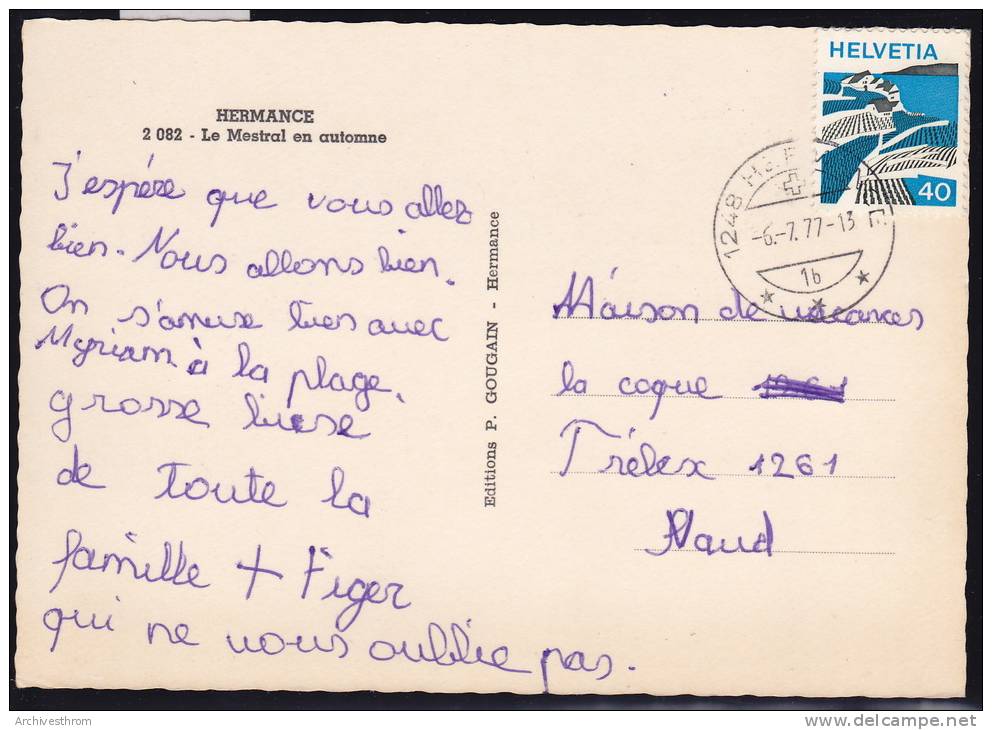 HERMANCE
2 082 - Le Mestral en automne
J'espère que vous allez
bien. Nous allons bien.
On s'amuse bien avec
Myriam à la plage.
grosse biese
de toute la
famille + Tiger
qui ne vous oublie pas.
Editions P. GOUGAIN - Hermance
HELVETIA
40
1248 HERMANCE
-6.-7.77-13
1b
Maison de vacances
la coque 1261
Trélex 1261
Vaud
Archivesthrom
delcampe.net